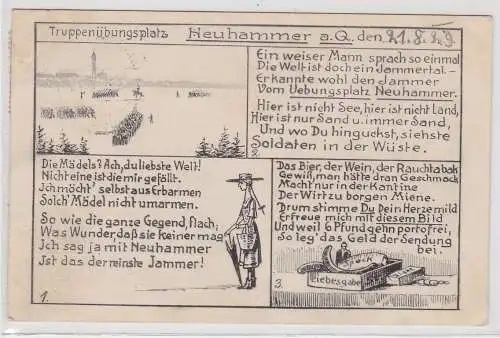 Truppenübungsplatz Neuhammer a.Q. den 21.8.
Ein weiser Mann sprach so einmal
Die Welt ist doch ein Jammertal.-
Er kannte wohl den Jammer
Vom Uebungsplatz Neuhammer.
Hier ist nicht See, hier ist nicht Land,
Hier ist nur Sand u. immer Sand,
Und wo Du hinguckst, siehste
Soldaten in der Wüste.
2.
Die Mädels? Ach, du liebste Welt!
Nicht eine ist die mir gefällt.
Ich möcht' selbst aus Erbarmen
Solch' Mädel nicht umarmen.
So wie die ganze Gegend, flach;
Was Wunder, daß sie keiner mag
Ich sag ja mit Neuhammer
Ist das der reinste Jammer!
1.
Das Bier, der Wein, der Rauchtabak
Gewiß, man hätte dran Geschmack
Macht' nur in der Kantine
Der Wirt zu borgen Miene.
Drum stimme Du Dein Herze mild
Erfreue mich mit diesem Bild
Und weil 6 Pfund gehn portofrei,
So leg' das Geld der Sendung
bei.
3.
Liebesgabe